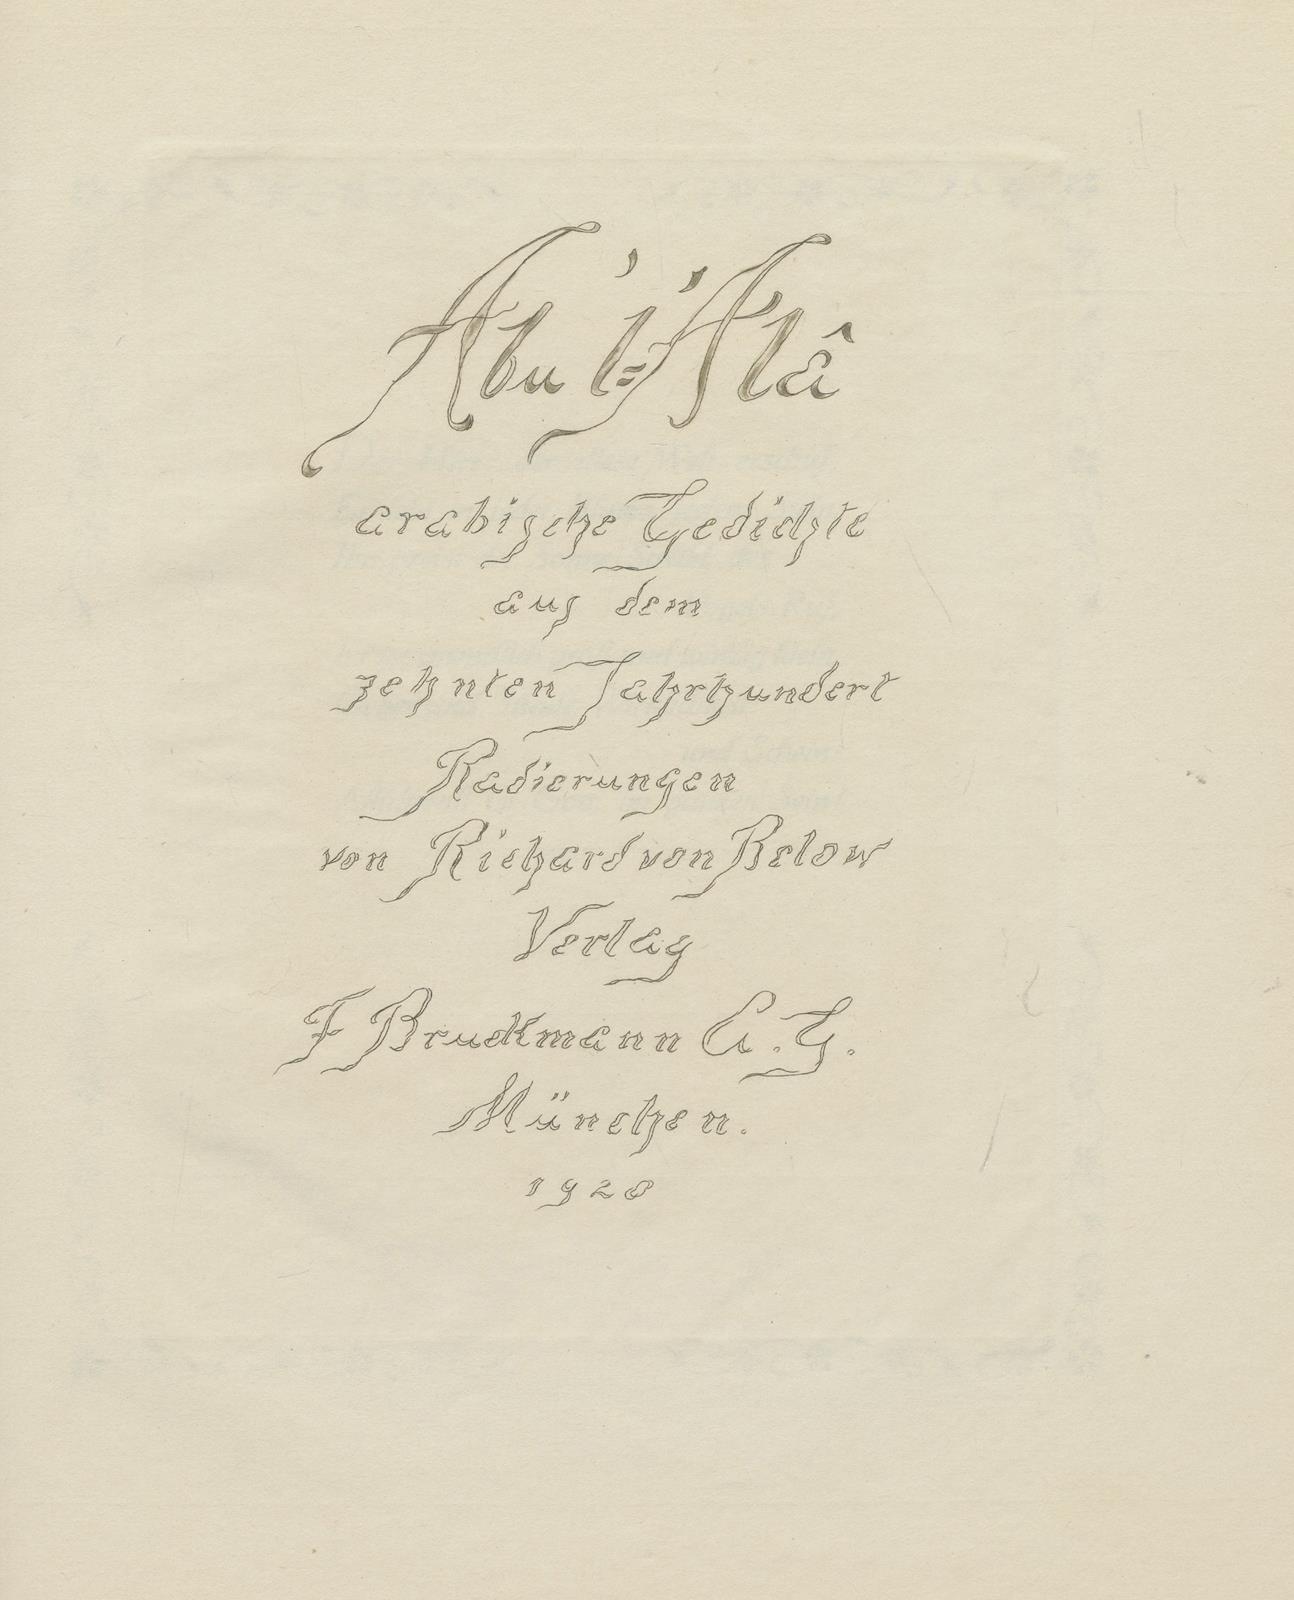 Abu 'l='Alâ
arabische Gedichte
aus dem
zehnten Jahrhundert
Radierungen
von Richard von Below
Verlag
F Bruckmann A. G.
München.
1928